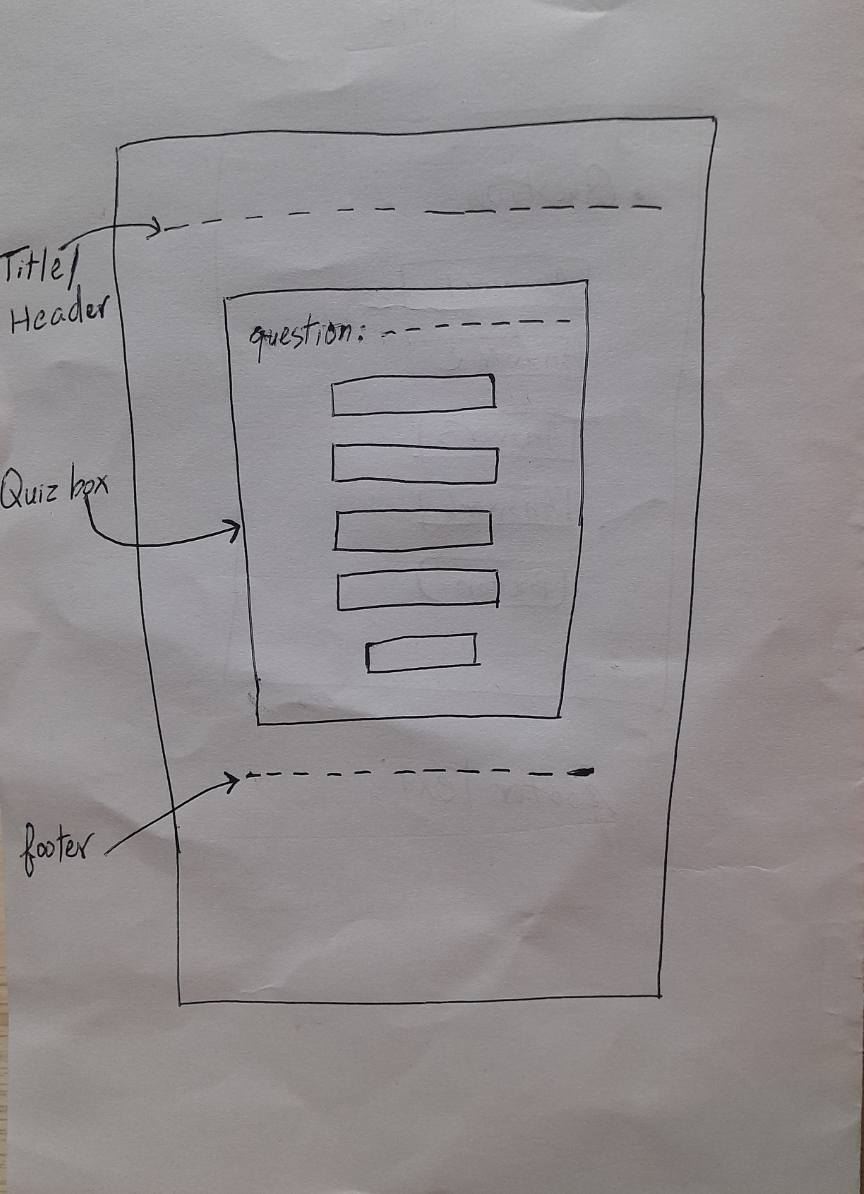 Title/
Header
question:
Quiz box
footer